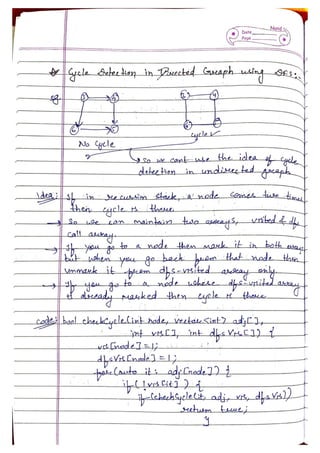 Date
Page
Cycle Detection in Directed Graph using DFS:-
eg:
No Cycle
cycle ✓
→ so we can't use the idea of cycle
detection in undirected graph
Idea: If in recursion stack, a node comes two times
then cycle is there.
→ So we can maintain two arrays, visited & dfs
call array.
→ If you go to a node then mark it in both array
but when you go back from that node then
unmark it from dfs-visited array only.
→ If you go to a node whose dfs-visited array
is already marked then cycle is there
code: bool checkCycle(int node, vector<int> adj[],
int vis[], int dfsVis[]) {
vis[node] = 1;
dfsVis[node] = 1;
for (auto it : adj[node]) {
if (!vis[it]) {
if (checkCycle(it, adj, vis, dfsVis))
return true;
}